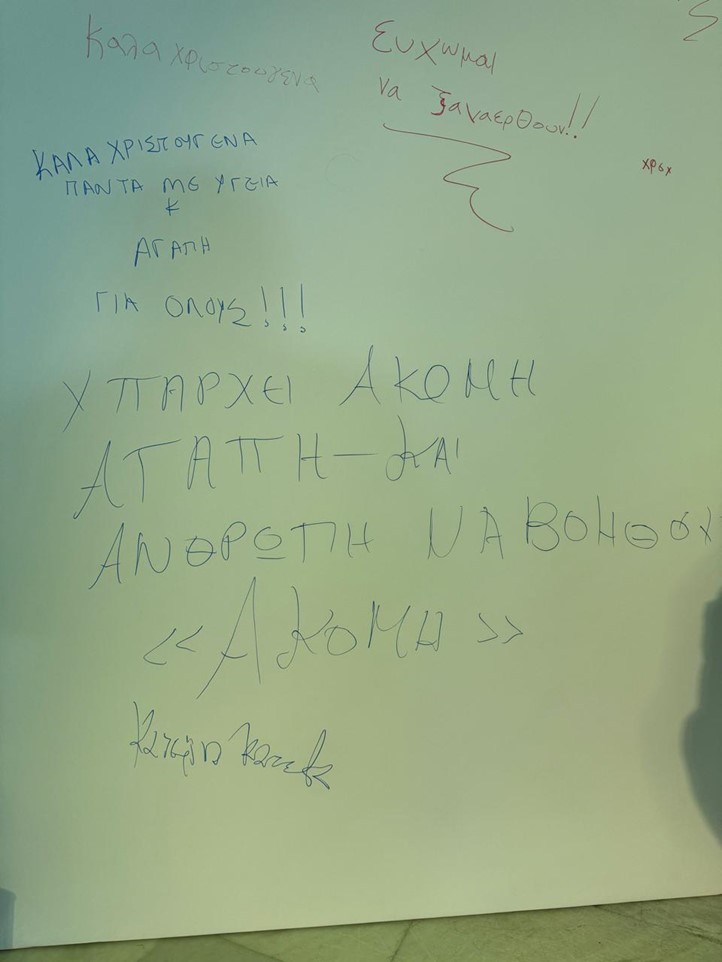 Καλα χριστουγενα
Ευχωμαι
να ξαναερθουν!!
ΚΑΛΑ ΧΡΙΣΤΟΥΓΕΝΑ
ΠΑΝΤΑ ΜΕ ΥΓΕΙΑ
Κ
ΑΓΑΠΗ
ΓΙΑ ΟΛΟΥΣ!!!
ΥΠΑΡΧΕΙ ΑΚΟΜΗ
ΑΓΑΠΗ – ΚΑΙ
ΑΝΘΡΟΠΗ ΝΑ ΒΟΗΘΟΥ
<<ΑΚΟΜΗ>>